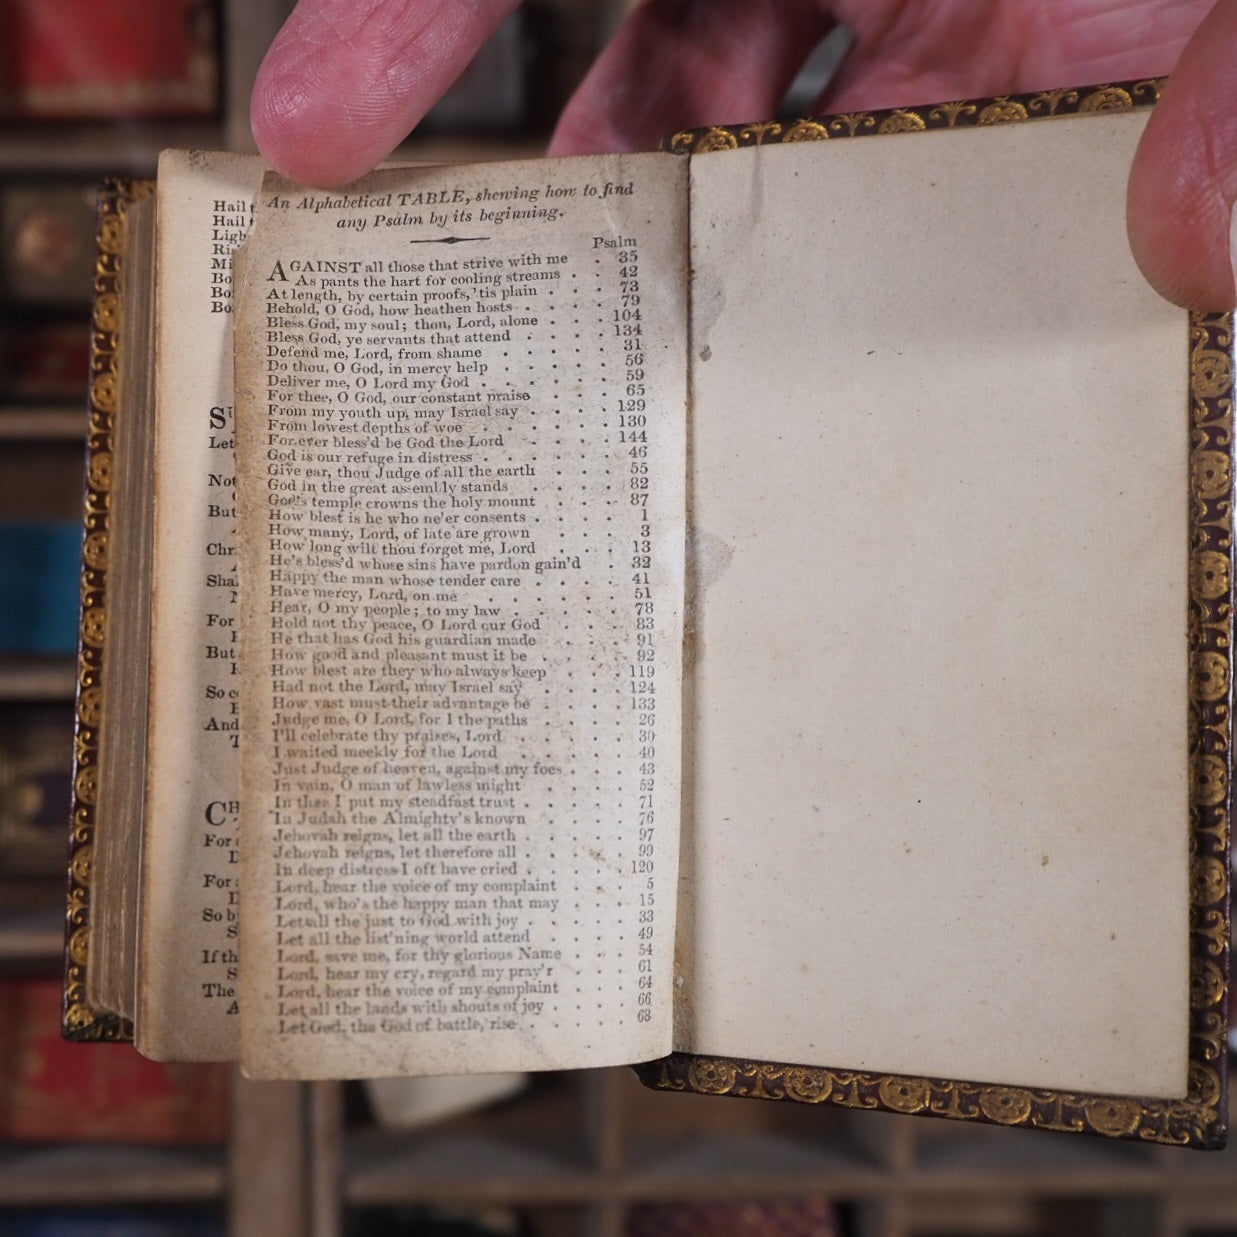 Hail
Hail
But
Let
Not
But
For
But
And
For
For
So b
If th
The
An Alphabetical TABLE, shewing how to find
any Psalm by its beginning.
Psalm
AGAINST all those that strive with me . 35
As pants the hart for cooling streams . . 42
At length, by certain proofs, 'tis plain . . . 73
Behold, O God, how heathen hosts . . . . 79
Bless God, my soul; thou, Lord, alone . . . 104
Bless God, ye servants that attend . . . . 134
Defend me, Lord, from shame . . . . . 31
Do thou, O God, in mercy help . . . . . 56
Deliver me, O Lord my God . . . . . . 59
For thee, O God, our constant praise . . . . 65
From my youth up, may Israel say . . . . 129
From lowest depths of woe . . . . . . 130
For ever bless'd be God the Lord . . . . 144
God is our refuge in distress . . . . . . 46
Give ear, thou Judge of all the earth . . . . 55
God in the great assembly stands . . . . . 82
God's temple crowns the holy mount . . . . 87
How blest is he who ne'er consents . . . . 1
How many, Lord, of late are grown . . . . 3
How long wilt thou forget me, Lord . . . 13
He's bless'd whose sins have pardon gain'd . 32
Happy the man whose tender care . . . . 41
Have mercy, Lord, on me . . . . . . 51
Hear, O my people; to my law . . . . . 78
Hold not thy peace, O Lord our God . . . 83
He that has God his guardian made . . . . 91
How good and pleasant must it be . . . . 92
How blest are they who always keep . . . 119
Had not the Lord, may Israel say . . . . 124
How vast must their advantage be . . . . 133
Judge me, O Lord, for I the paths . . . . 26
I'll celebrate thy praises, Lord . . . . . 30
I waited meekly for the Lord . . . . . 40
Just Judge of heaven, against my foes . . . 43
In vain, O man of lawless might . . . . 52
In thee I put my steadfast trust . . . . . 71
In Judah the Almighty's known . . . . 76
Jehovah reigns, let all the earth . . . . . 97
Jehovah reigns, let therefore all . . . . . 99
In deep distress I oft have cried . . . . . 120
Lord, hear the voice of my complaint . . . 5
Lord, who's the happy man that may . . . 15
Let all the just to God with joy . . . . . 33
Let all the list'ning world attend . . . . 49
Lord, save me, for thy glorious Name . . . 54
Lord, hear my cry, regard my pray'r . . . 61
Lord, hear the voice of my complaint . . . 64
Let all the lands with shouts of joy . . . . 66
Let God, the God of battle, rise . . . . . 68